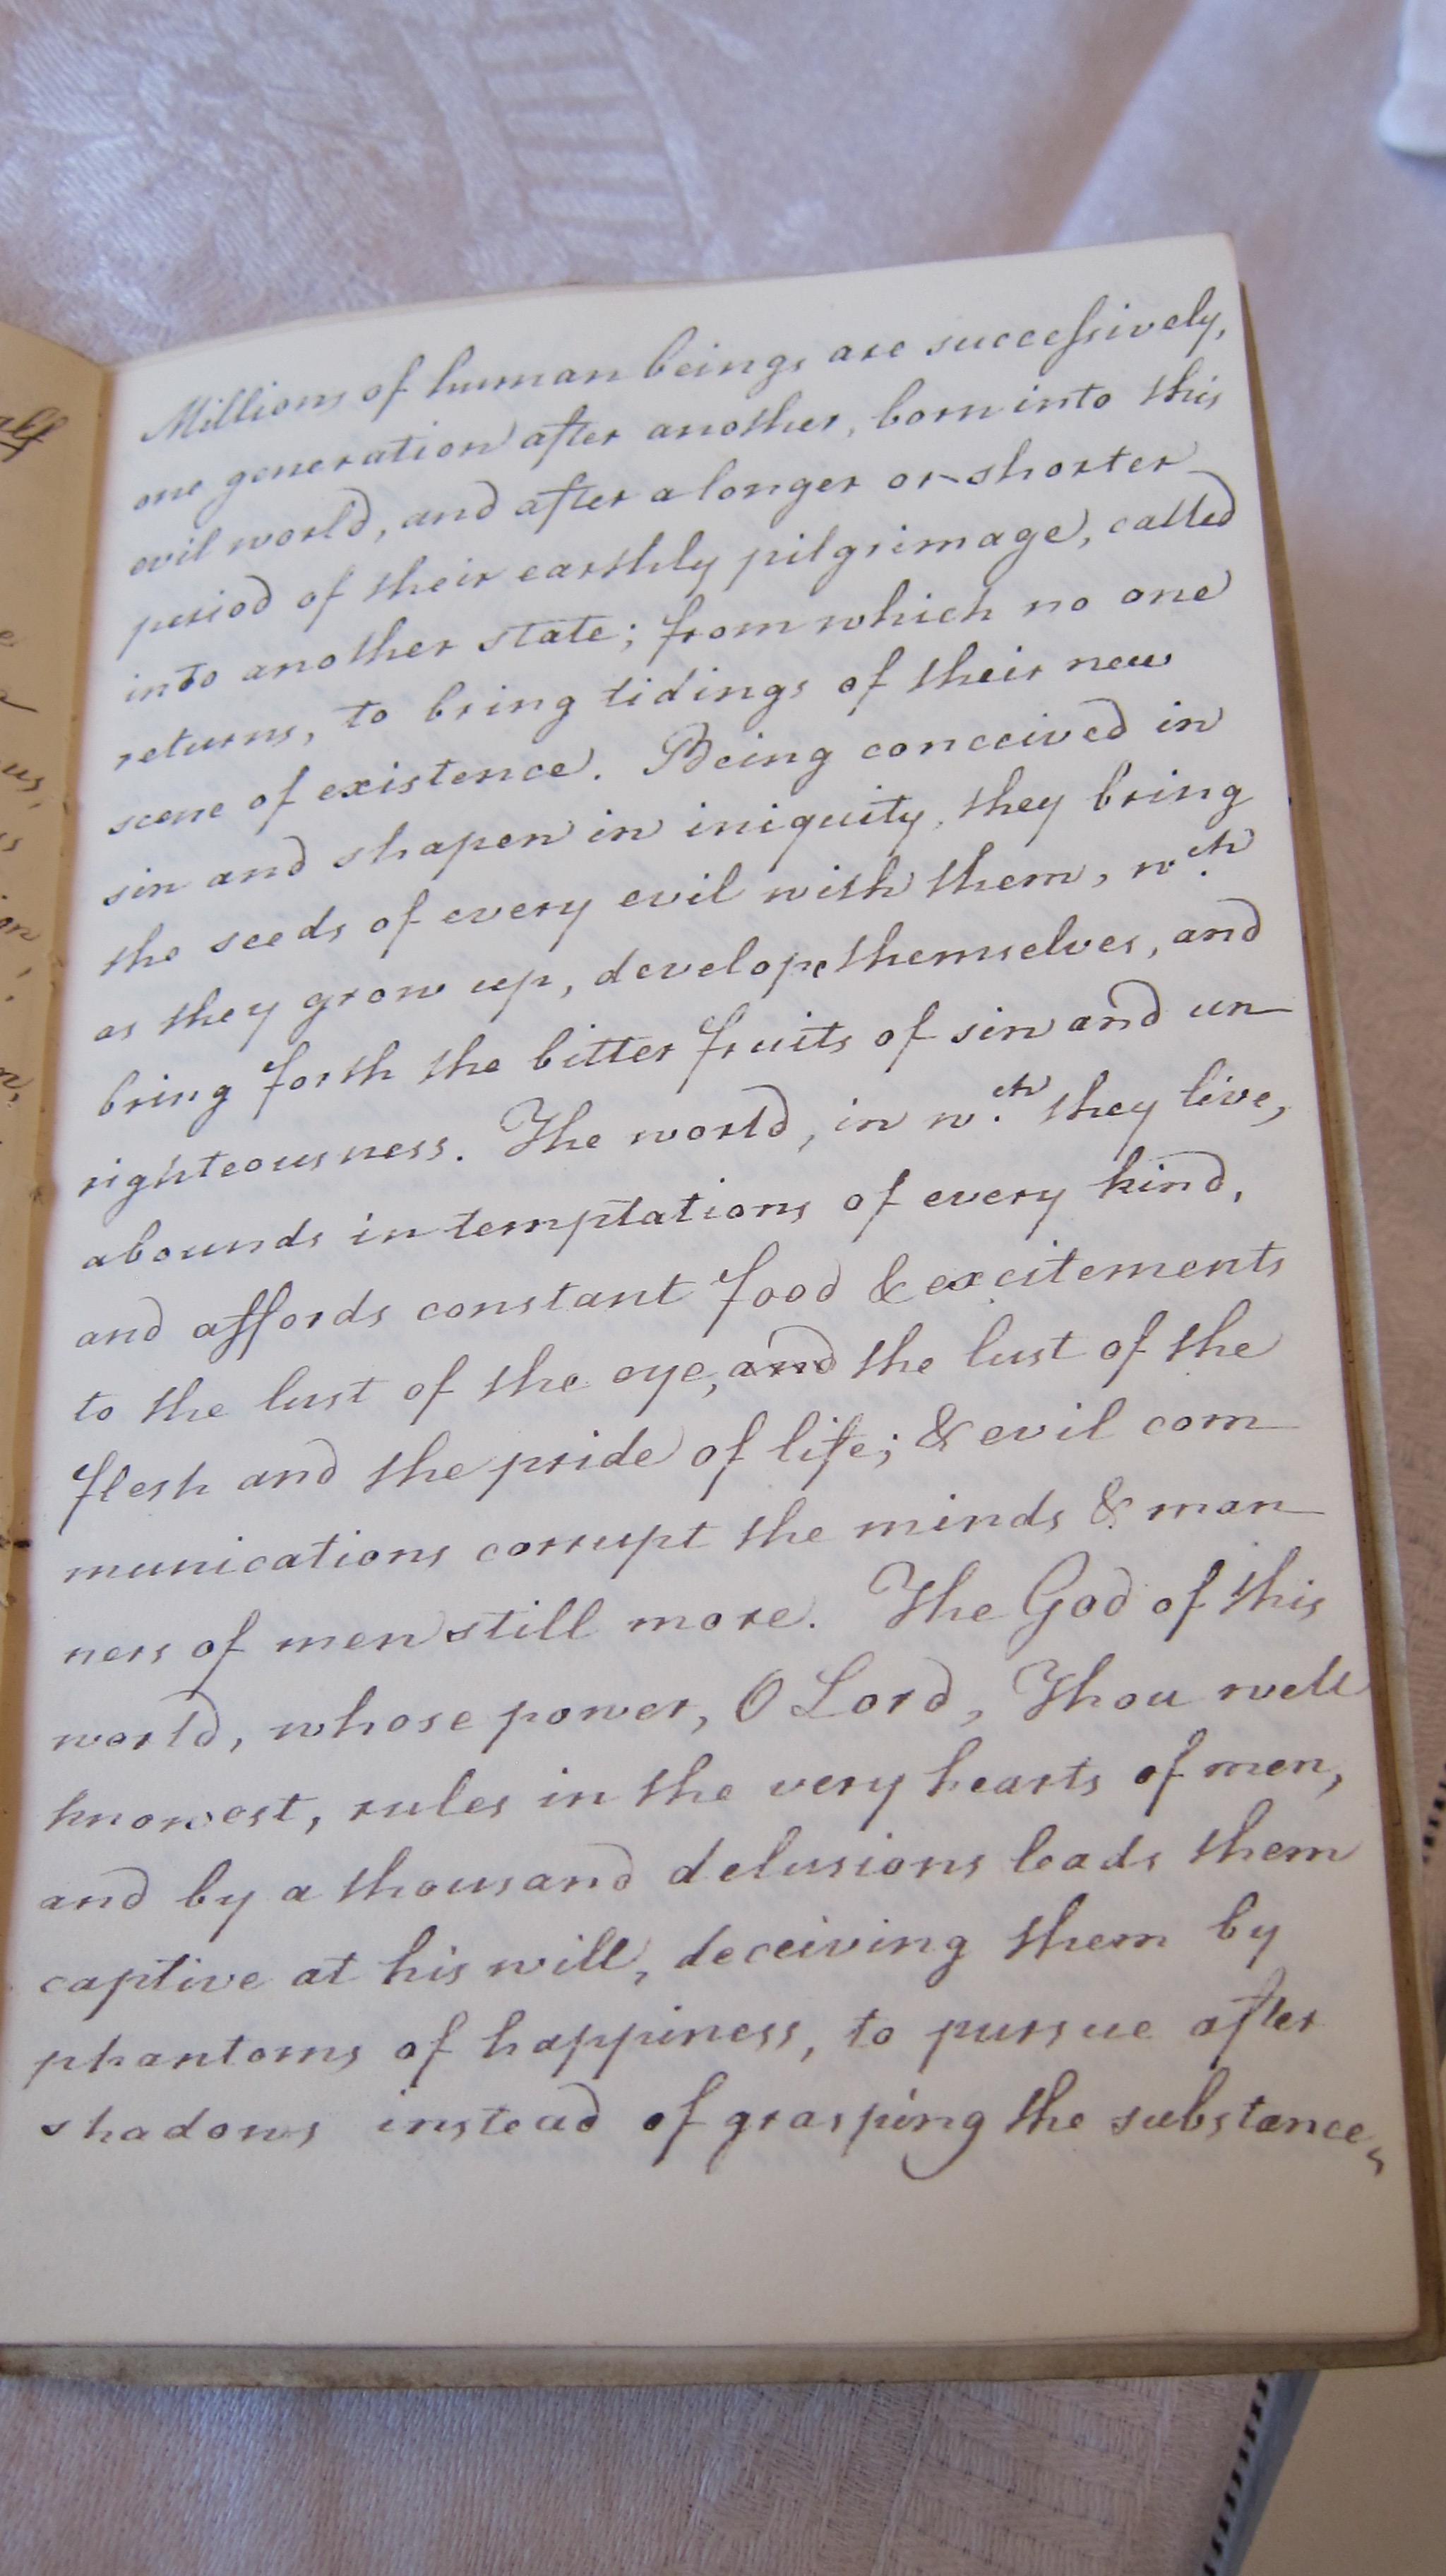 Millions of human beings are successively,
one generation after another, born into this
evil world, and after a longer or shorter
period of their earthly pilgrimage, called
into another state; from which no one
returns, to bring tidings of their new
scene of existence. Being conceived in
sin and shapen in iniquity, they bring
the seeds of every evil with them, wch.
as they grow up, develope themselves, and
bring forth the bitter fruits of sin and un
righteousness. The world, in wch. they live,
abounds in temptations of every kind,
and affords constant food & excitements
to the lust of the eye, and the lust of the
flesh and the pride of life; & evil com
munications corrupt the minds & man
ners of men still more. The God of this
world, whose power, O Lord, Thou well
knowest, rules in the very hearts of men,
and by a thousand delusions leads them
captive at his will, deceiving them by
phantoms of happiness, to pursue after
shadows instead of grasping the substance,